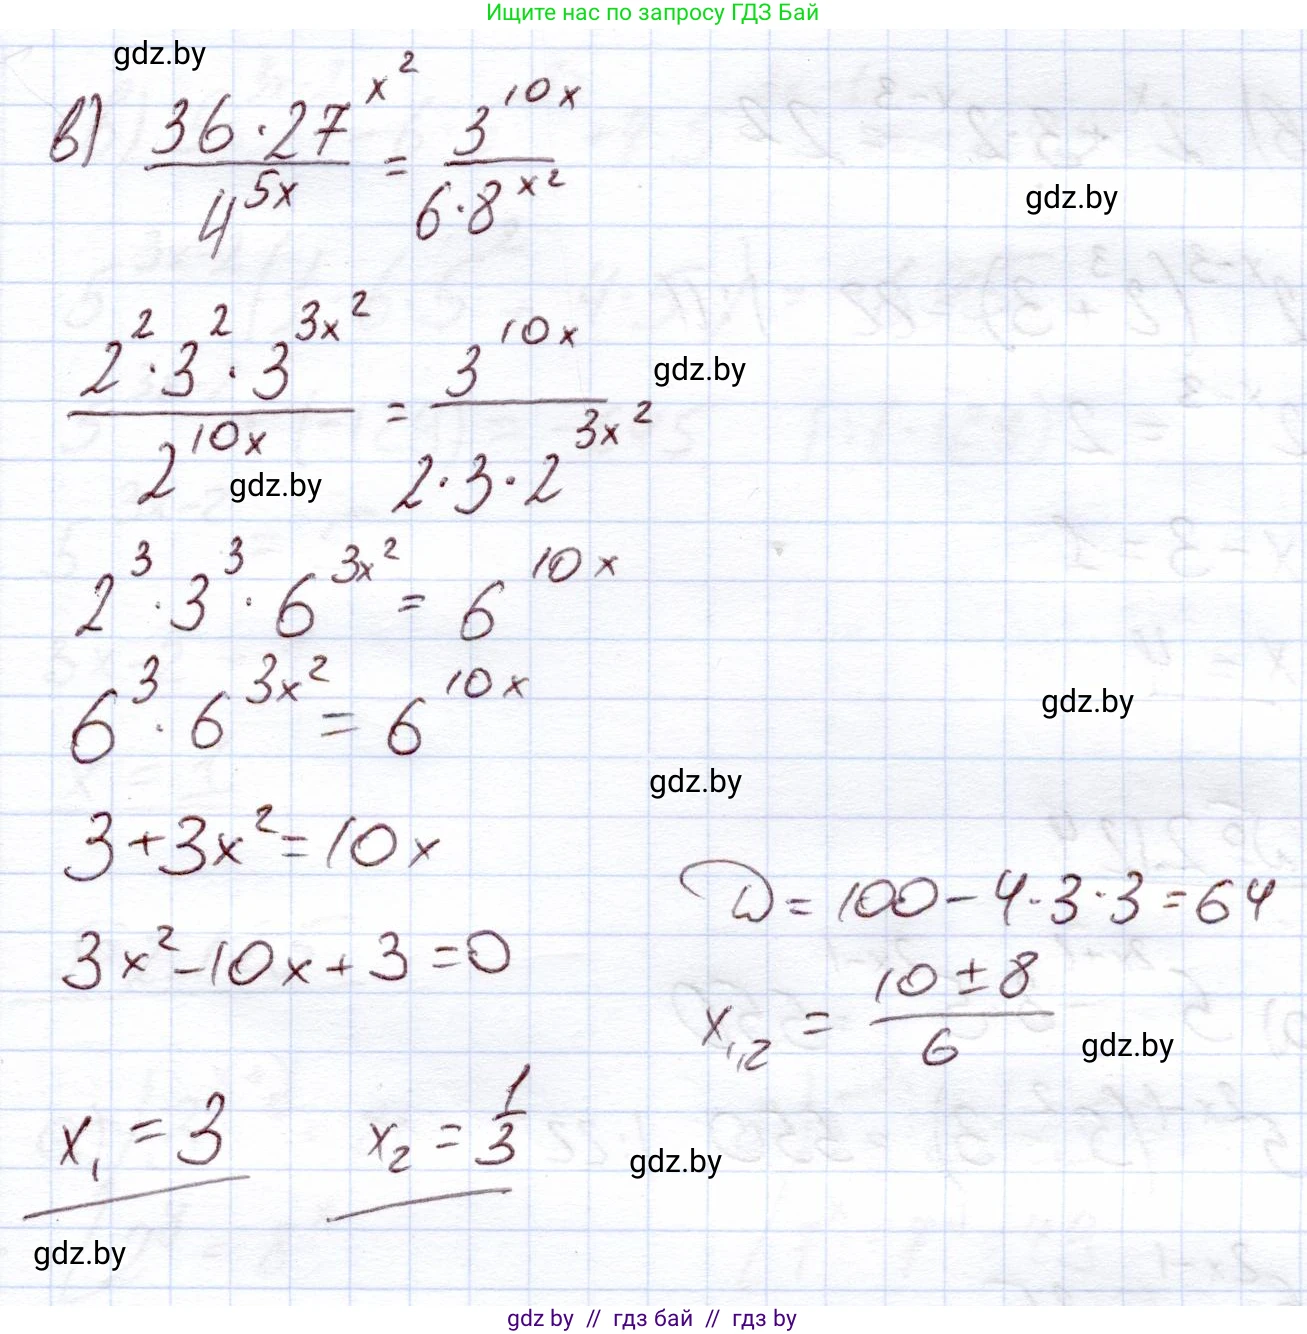 Ищите нас по запросу ГДЗ Бай
gdz.by
в) (36·27^(x^2))/(4^(5x)) = (3^(10x))/(6·8^(x^2))
gdz.by
(2^2·3^2·3^(3x^2))/(2^(10x)) = (3^(10x))/(2·3·2^(3x^2))
gdz.by
gdz.by
2^3·3^3·6^(3x^2) = 6^(10x)
6^3·6^(3x^2) = 6^(10x)
gdz.by
gdz.by
3+3x^2=10x
D=100-4·3·3=64
3x^2-10x+3=0
x_(1,2) = (10±8)/6
gdz.by
x_1=3 x_2=1/3
gdz.by
gdz.by
gdz by // гдз бай // гдз by